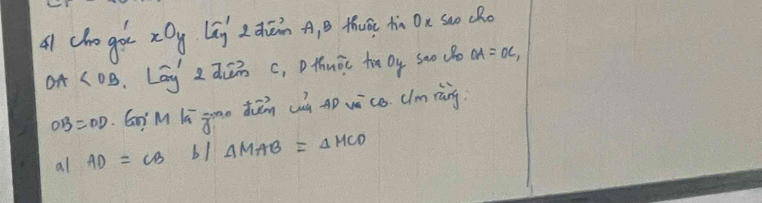 4/ cho góc xOy. Lấy 2 điểm A, B thuộc tia Ox sao cho
OA < OB. Lấy 2 điểm C, D thuộc tia Oy sao cho OA = OC,
OB = OD. Gọi M là giao điểm của AD và CB. C/m rằng:
a/ AD = CB b/ ΔMAB = ΔMCD